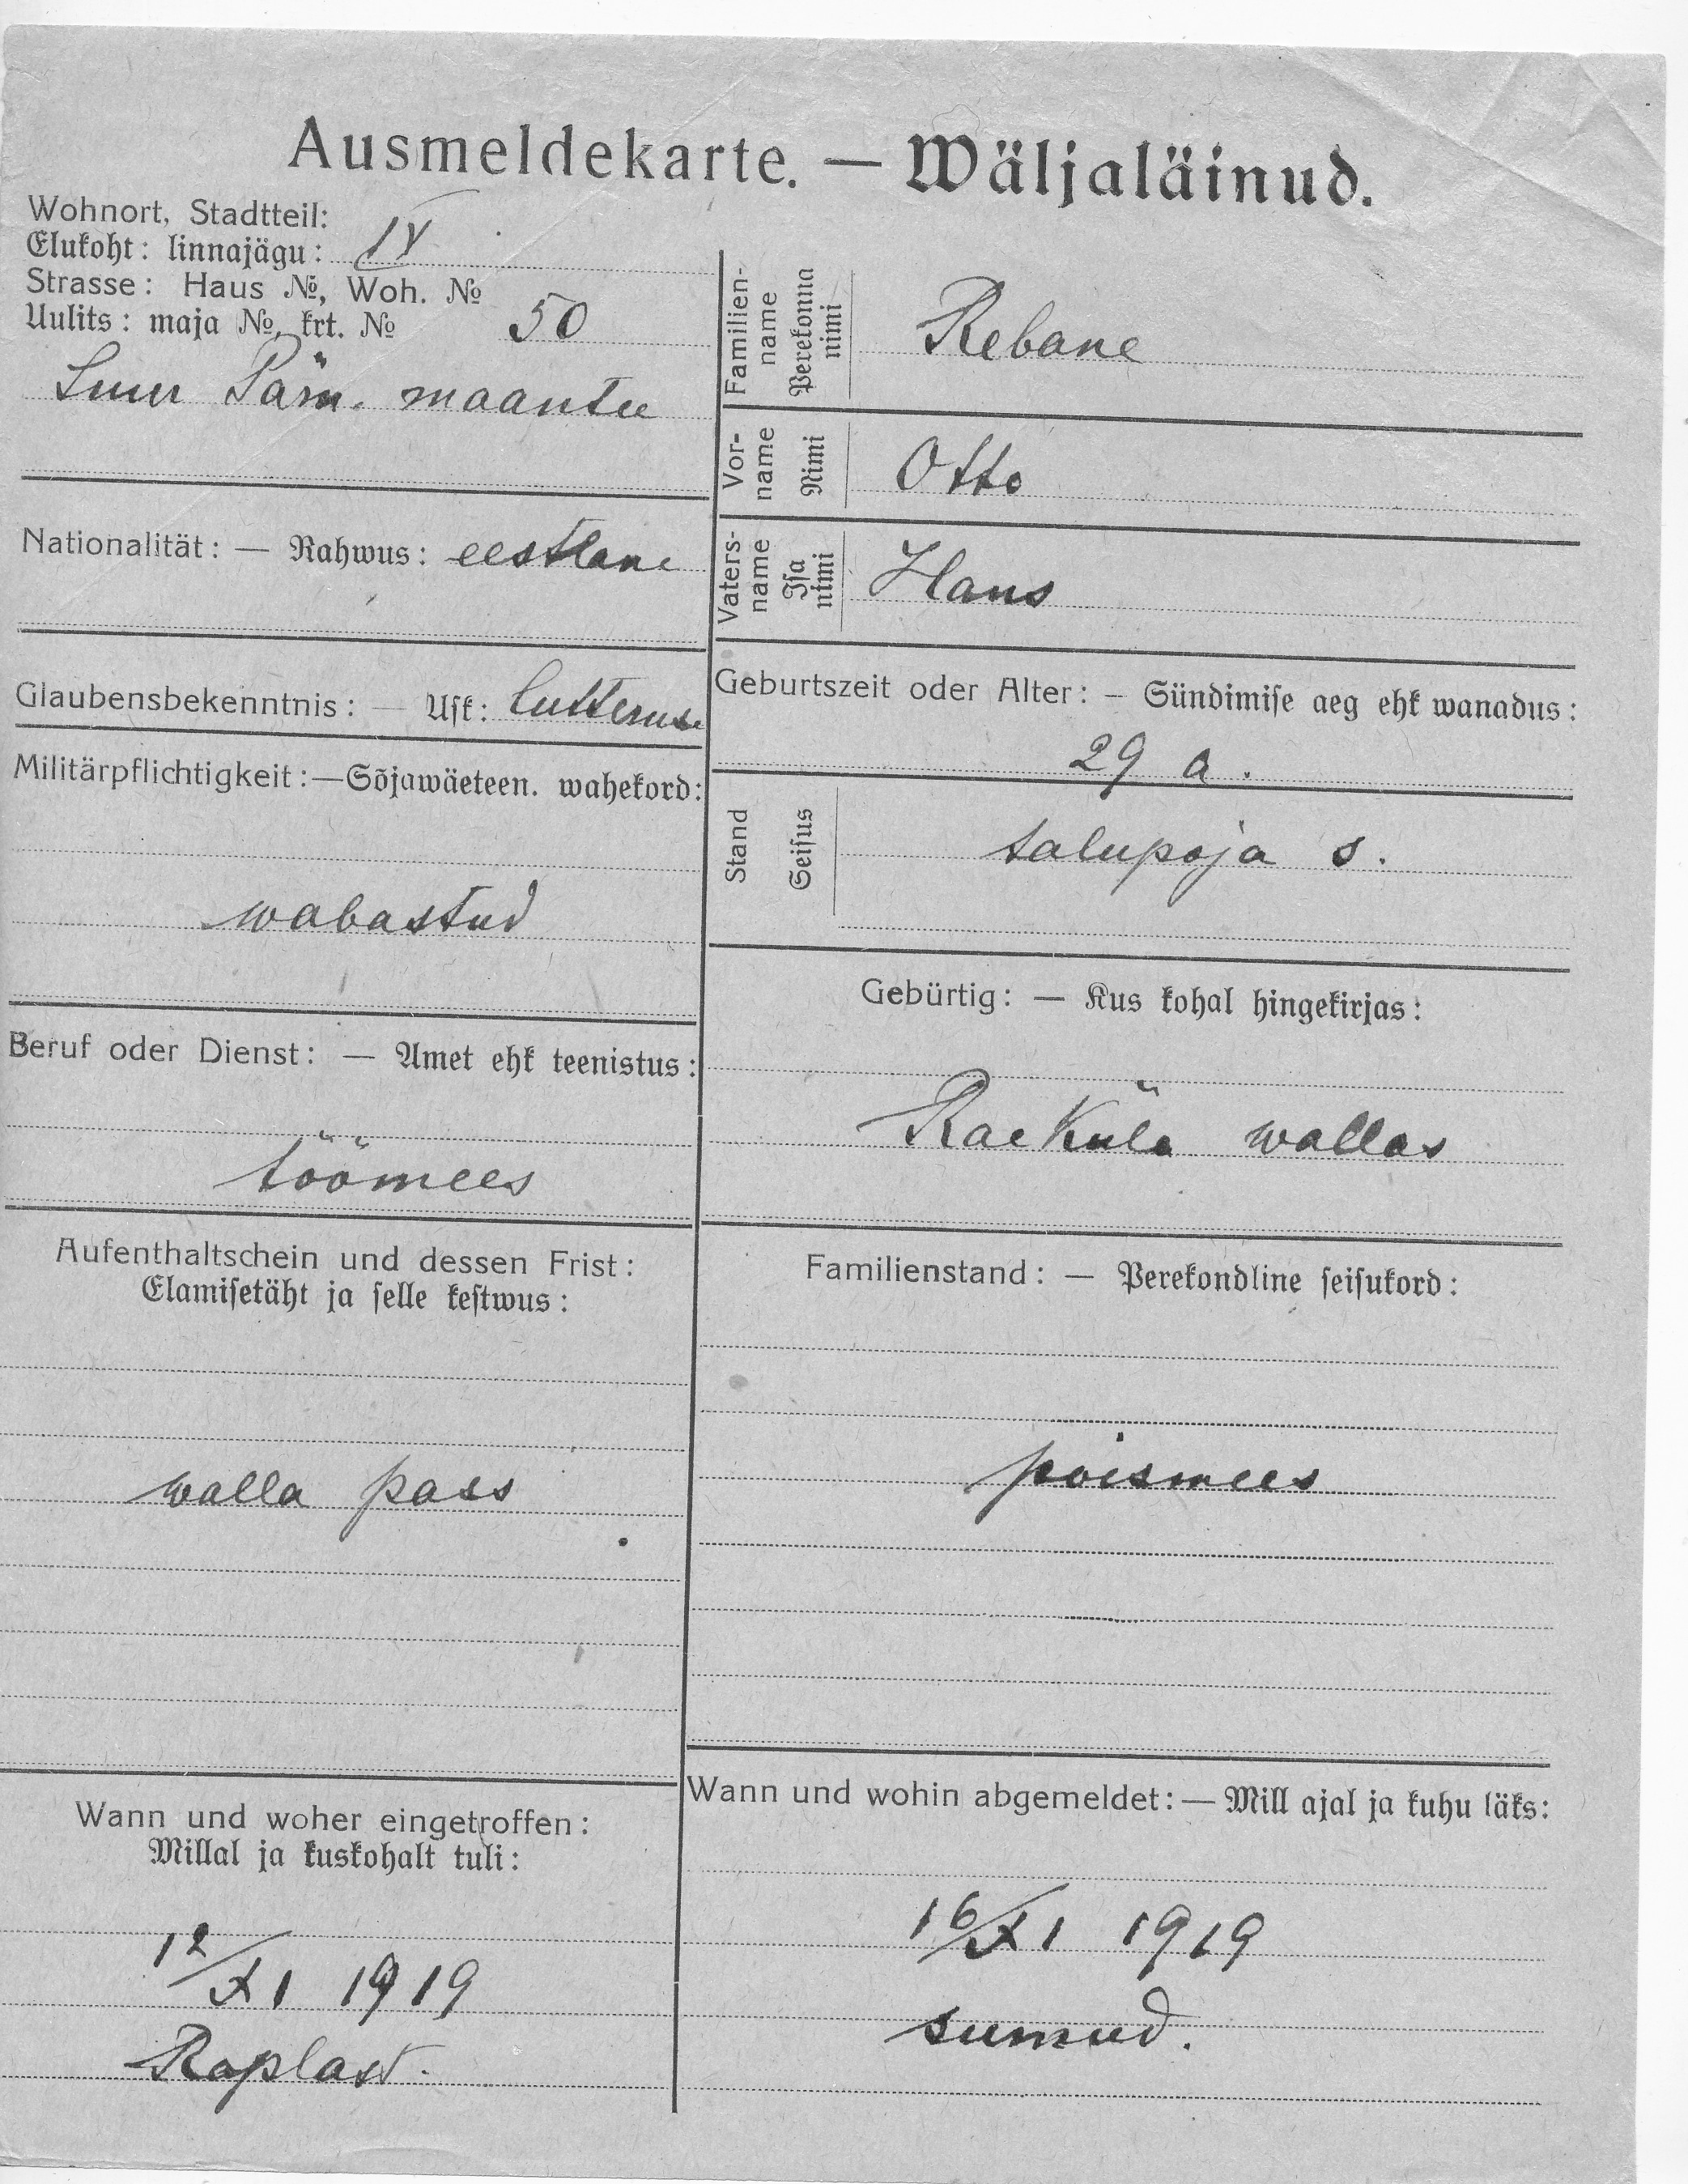 Ausmeldekarte. — Wäljaläinud.
Wohnort, Stadtteil:
Elukoht: linnajägu: IV
Strasse: Haus №, Woh. №
Uulits: maja №, krt. № 50
Suur Pärn. maantee
Nationalität: — Rahwus: eestlane
Glaubensbekenntnis: — Usk: lutteruse
Militärpflichtigkeit:—Sõjawäeteen. wahekord:
wabastud
Beruf oder Dienst: — Amet ehk teenistus:
töömees
Aufenthaltschein und dessen Frist:
Elamisetäht ja selle kestwus:
walla pass
Wann und woher eingetroffen:
Millal ja kuskohalt tuli:
12/XI 1919
Raplast.
Familien-
name
Perekonna
nimi
Rebane
Vor-
name
Nimi
Otto
Vaters-
name
Isa
nimi
Hans
Geburtszeit oder Alter: — Sündimise aeg ehk wanadus:
29 a.
Stand
Seisus
talupoja s.
Gebürtig: — Kus kohal hingekirjas:
Raeküla wallas
Familienstand: — Perekondline seisukord:
poismees
Wann und wohin abgemeldet: — Mill ajal ja kuhu läks:
16/XI 1919
surnud.